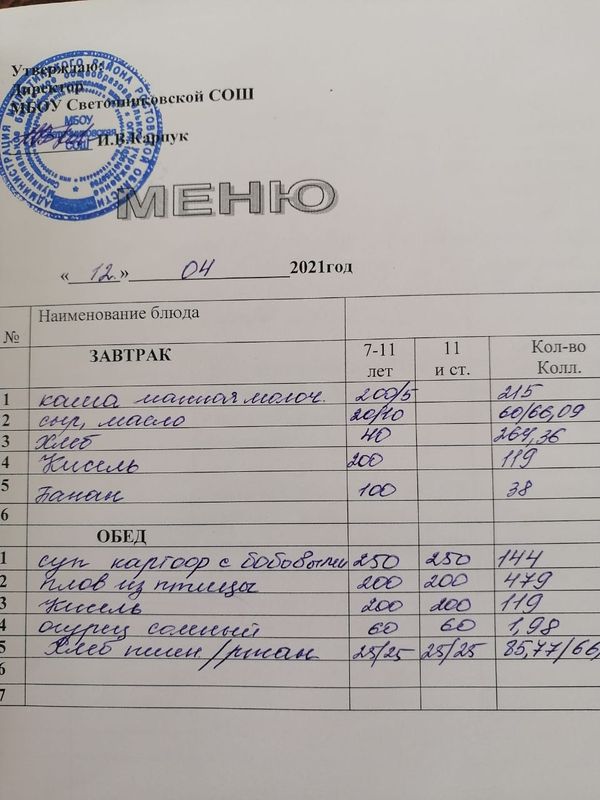 Утверждаю:
Директор
МБОУ Светошниковской СОШ
И.В.Карпук
МЕНЮ
« 12. » 04 2021год
№ Наименование блюда
ЗАВТРАК 7-11 лет 11 и ст. Кол-во Колл.
1 каша манная молоч. 200/5 215
2 сыр, масло 20/10 60/66,09
3 Хлеб 40 264,36
4 Кисель 200 119
5 Банан 100 38
6
ОБЕД
1 суп картоф с бобовыми 250 250 144
2 плов из птицы 200 200 479
3 Кисель 200 200 119
4 огурец соленый 60 60 1,98
5 Хлеб пшен/ржан 25/25 25/25 85,77/66,
6
7